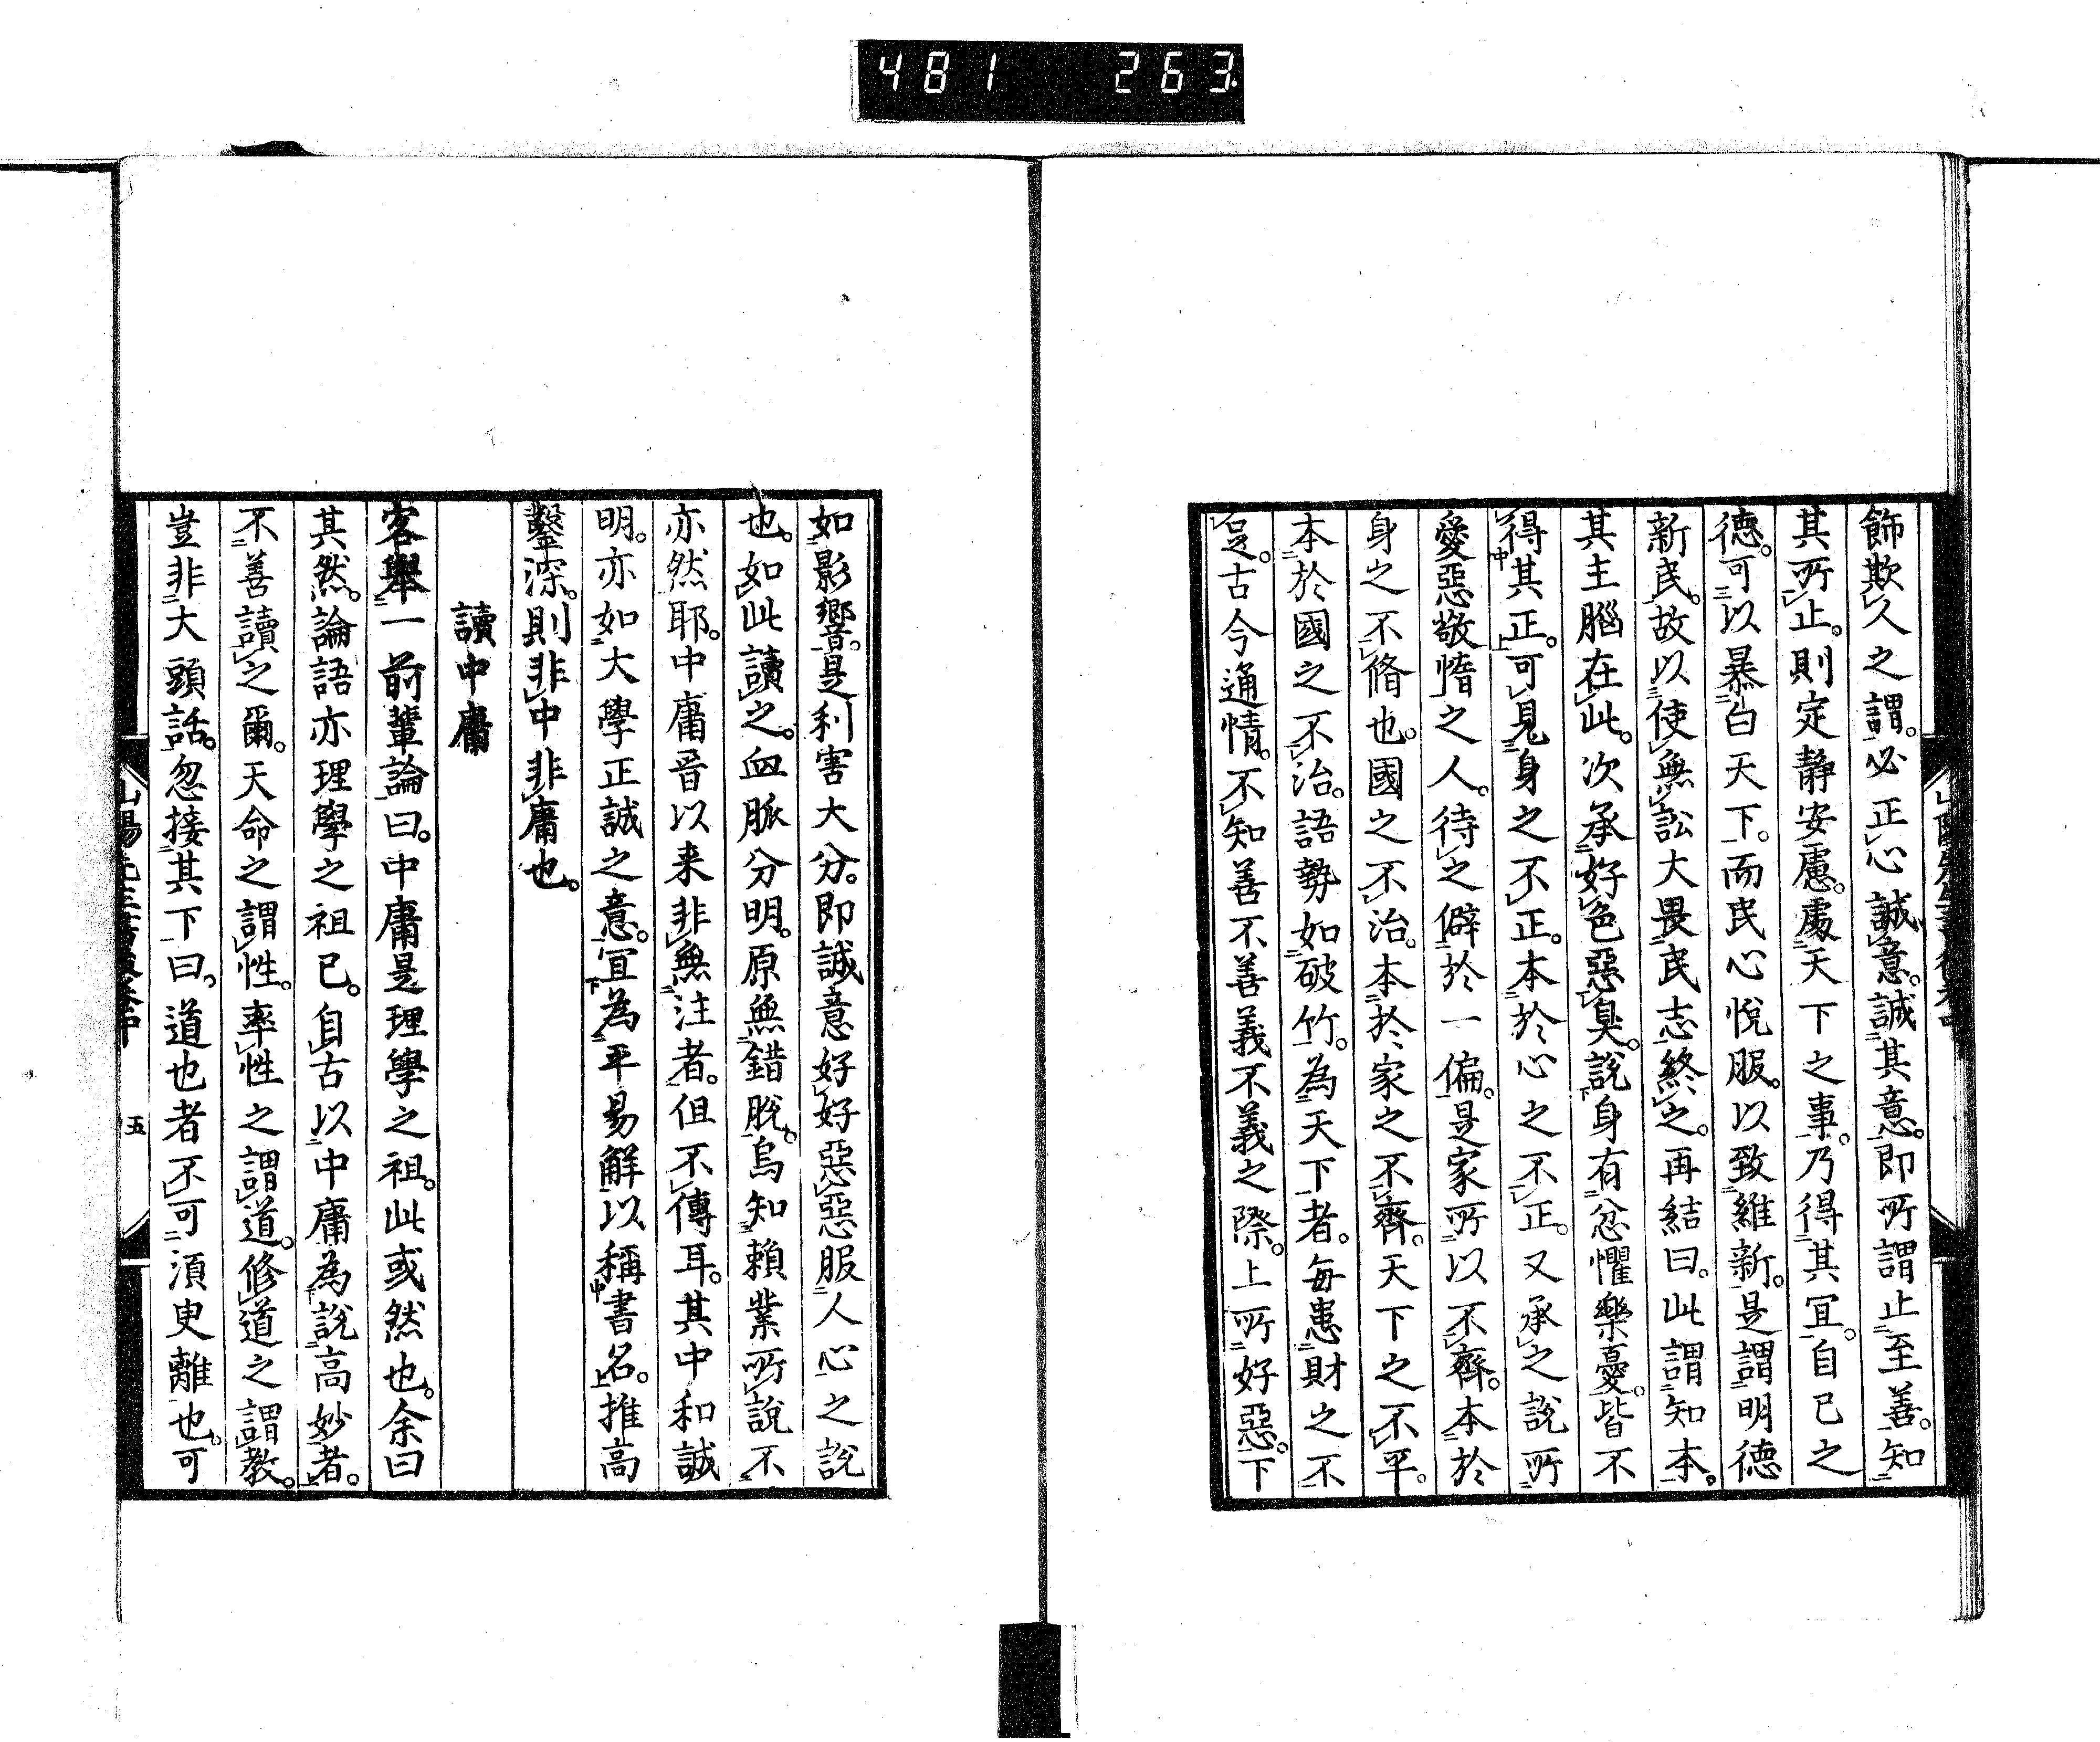 481 263
飾欺久之謂。必正心誠意。誠其意。即所謂止至善。知
其所止。則定静安慮。處天下之事。乃得其宜。自己之
德。可以暴白天下。而民心悅服。以致維新。是謂明德
新民。故以使無訟大畏民志終之。再結曰。此謂知本。
其主腦在此。次承好色惡臭。說身有忿懼樂憂。皆不
得其正。可見身之不正。本於心之不正。又承之說所
愛惡敬惰之人。待之僻於一偏。是家所以不齊。本於
身之不脩也。國之不治。本於家之不齊。天下之不平。
本於國之不治。語勢如破竹。為天下者。每患財之不
足。古今通情。不知善不善義不義之際。上所好惡。下
如影響。是利害大分。即誠意好好惡惡服人心之說
也。如此讀之。血脈分明。原無錯脫。烏知賴業所說不
亦然耶。中庸音以来非無注者。但不傳耳。其中和誠
明。亦如大學正誠之意。宜為平易解以稱書名。推高
鑿深。則非中非庸也。
讀中庸
客舉一前輩論曰。中庸是理學之祖。此或然也。余曰
其然。論語亦理學之祖已。自古以中庸為說高妙者。
不善讀之爾。天命之謂性。率性之謂道。修道之謂教。
豈非大頭話。忽接其下曰。道也者不可須臾離也。可
五